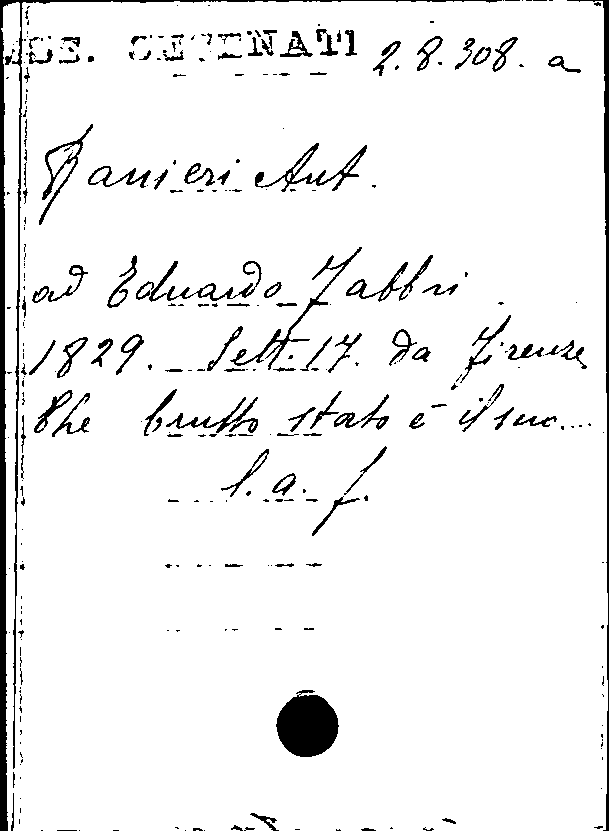 MSS. CESENATI 2.8.308. a
Ranieri Ant.
ad Eduardo Fabbri
1829. Sett. 17. da Firenze
Che brutto stato è il suo...
l. a. f.